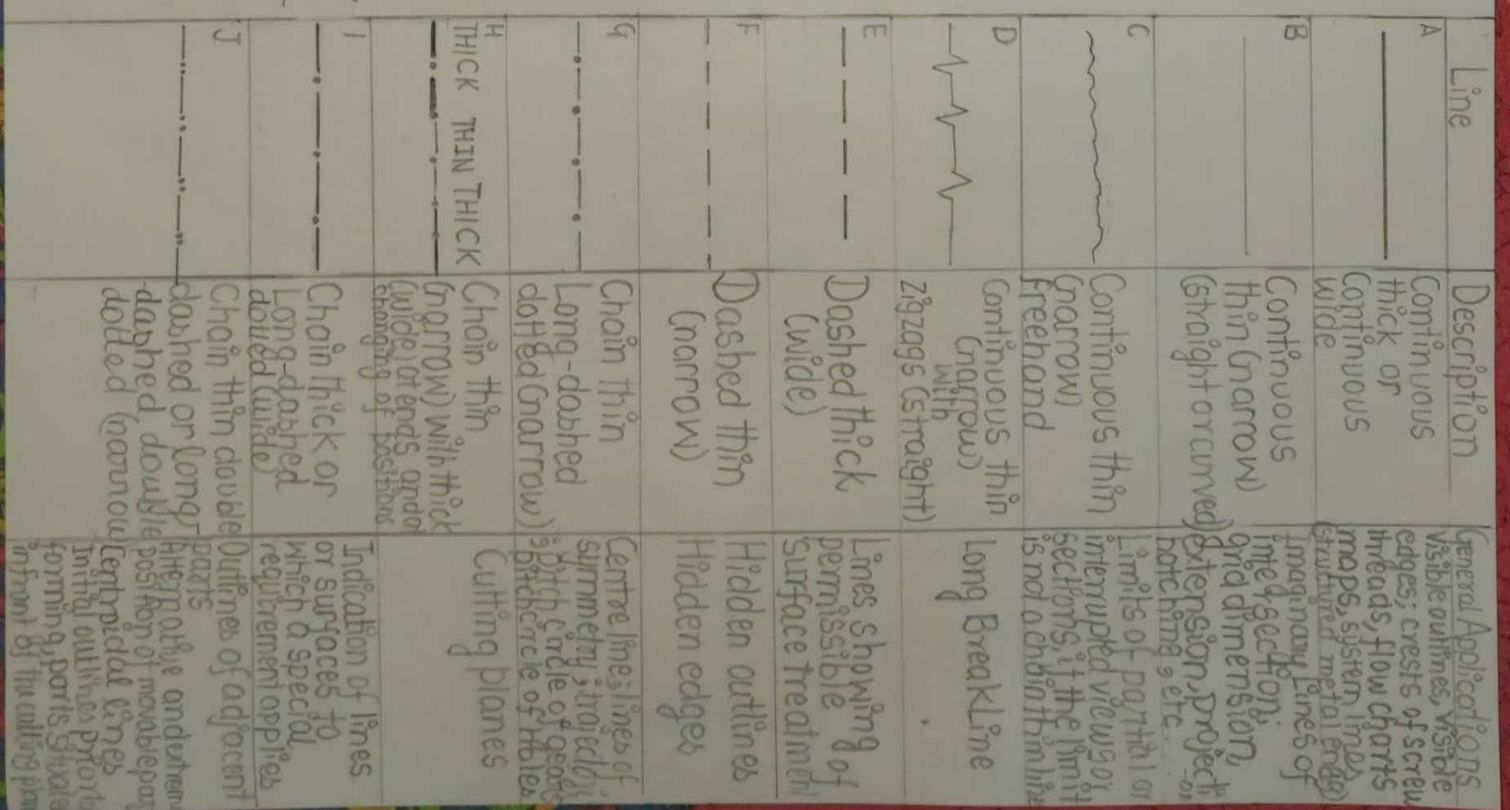 Line
Description
General Applications
A
Continuous
thick or
Continuous
wide
visible outlines, visible
edges; crests of screw
threads, flow charts
maps, system lines
(structured metal engg)
B
Continuous
thin (narrow)
(straight or curved)
Imaginary Lines of
intersection;
grid dimension,
extension, projecti
-on
hatching, etc.
C
Continuous thin
(narrow)
freehand
Limits of partial or
interrupted views or
sections, if the limit
is not a chain thin line
D
Continuous thin
(narrow)
with
zigzags (straight)
Long Break Line
E
Dashed thick
(wide)
Lines showing
permissible of
surface treatment
F
Dashed thin
(narrow)
Hidden outlines
Hidden edges
G
Chain thin
Long-dashed
dotted (narrow)
Centre line; lines of
summetry; trajector
; Pitch circle of gears
; pitch circle of Holes
H
THICK THIN THICK
Chain thin
(narrow) with thick
(wide) at ends and at
changing of positions
Cutting planes
I
Chain thick or
Long-dashed
dotted (wide)
Indication of lines
or surfaces to
which a special
requirement applies
J
Chain thin double
dashed or long-
-dashed double
dotted (narrow
Outlines of adjacent
parts
Alternative and
position of movable
Centroidal lines
Initial outlines prior to
forming, parts situate
infront of the cutting plan